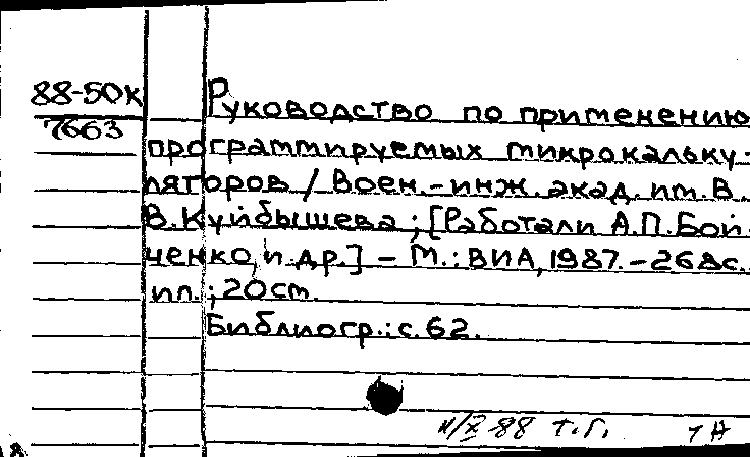 88-50К
7663
Руководство по применению
программируемых микрокальку-
ляторов / Воен.-инж. акад. им. В.
В. Куйбышева ; [Работали А.П. Бой-
ченко, и др.] – М.: ВИА, 1987. – 268с.
ил. ; 20см.
Библиогр.: с. 62.
88 т.г. 1 Н